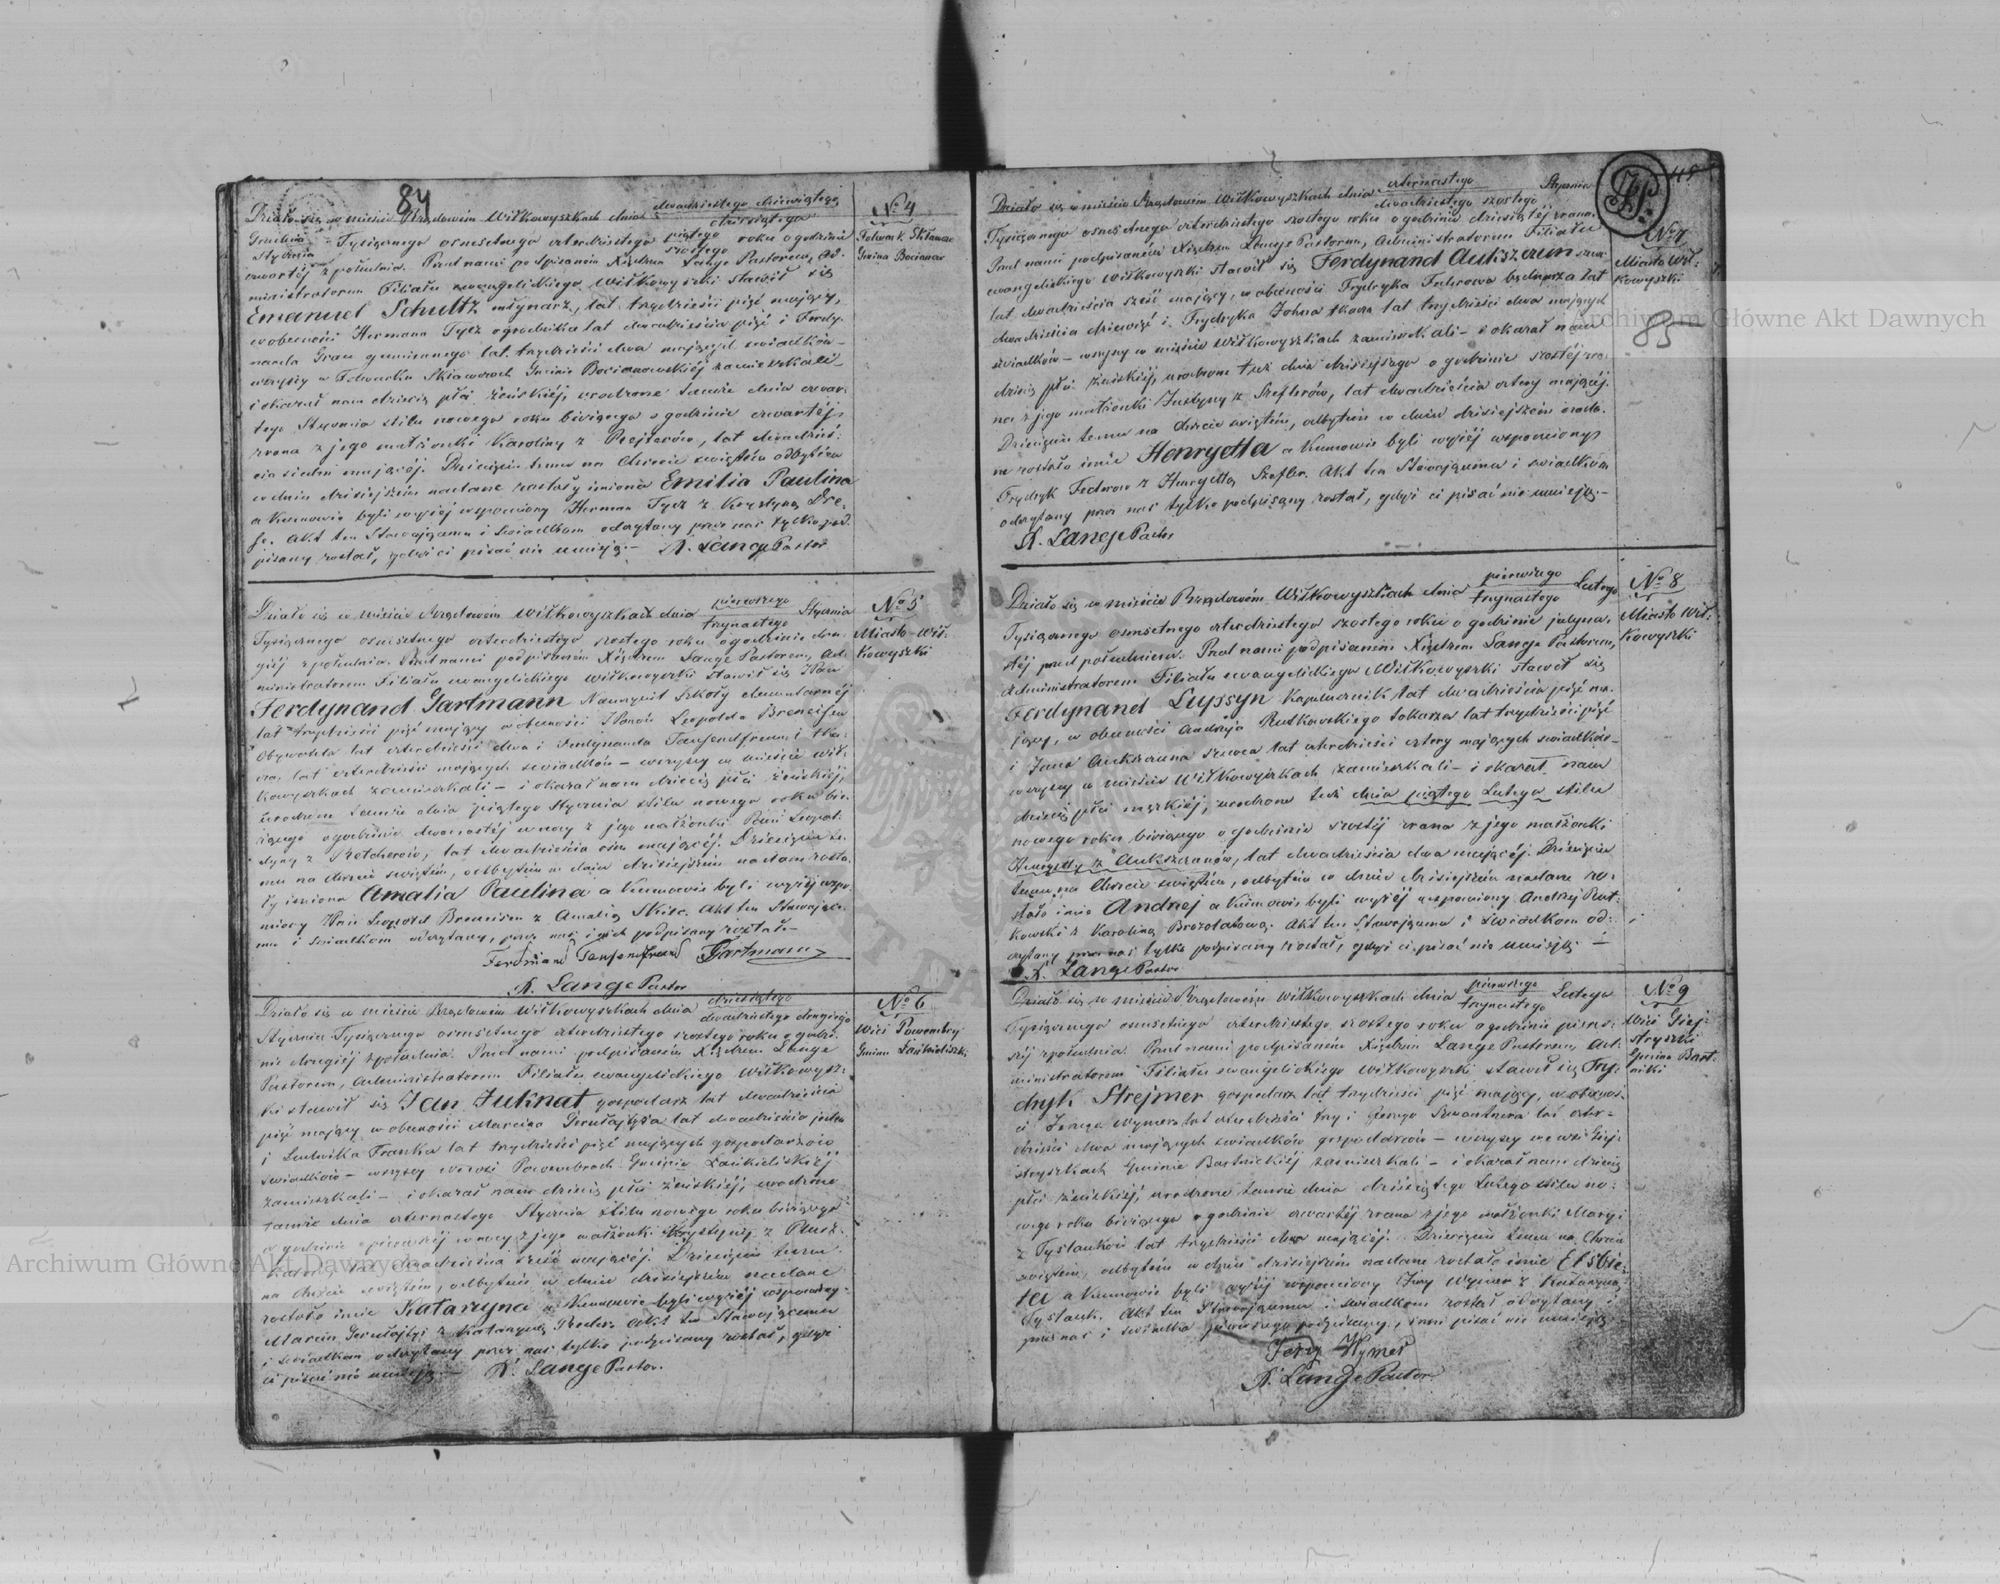 84
Działo się w mieście Rządowém Wiłkowyszkach dnia dwudziestego dziewiątego
Grudnia
Stycznia
Tysiącznego osmsetnego czterdziestego piątego
szóstego roku o godzinie
czwartéj z południa. Przed nami podpisaném Xiędzem Lange Pastorem, Ad-
ministratorem Filiału ewangelickiego Wiłkowyszki stawił się
Emanuel Schultz młynarz, lat trzydzieści pięć mający,
w obecności Hermana Tycz ogrodnika lat dwadzieścia pięć i Ferdy-
nanda Grau gumiennego lat trzydzieści dwa mających świadków-
wszyscy w Folwarku zamieszkali-
i okazał nam dziecię płci żeńskiéj, urodzone tamże dnia czwar-
tego Stycznia stilu nowego roku bieżącego o godzinie czwartéj
zrana z jego małżonki Karoliny z Rejterów, lat dwadzieś-
cia siedm mającéj. Dziecięciu temu na Chrzcie świętém odbytém
w dniu dzisiejszém nadane zostały imiona Emilia Paulina
a Kumowie byli wyżéj wspomniony Herman Tycz z Krystyną
Akt ten Stawającemu i świadkom odczytany przez nas tylko pod-
pisany został, gdyż ci pisać nie umieją.- K. Lange Pastor
№ 4
Folwark
Gmina
Działo się w mieście Rządowém Wiłkowyszkach dnia pierwszego
trzynastego Stycznia
Tysiącznego osmsetnego czterdziestego szóstego roku o godzinie dru-
giéj z południa. Przed nami podpisaném Xiędzem Lange Pastorem, Ad-
ministratorem Filiału ewangelickiego Wiłkowyszki stawił się Pan
Ferdynand Gartmann Nauczyciel Szkoły elementarnéj
lat trzydzieści pięć mający w obecności Panów Leopolda
Obywatela lat czterdzieści dwa i Ferdynanda Tausendfreund
lat czterdzieści mających świadków - wszyscy w mieście Wił-
kowyszkach zamieszkali - i okazał nam dziecię płci żeńskiéj,
urodzone tamże dnia piątego Stycznia stilu nowego roku bie-
żącego o godzinie dwunastéj w nocy z jego małżonki Pani Leopol-
dyny z lat dwadzieścia ośm mającéj. Dziecięciu te-
mu na chrzcie świętém, odbytém w dniu dzisiejszém nadane zosta-
ły imiona Amalia Paulina a Kumowie byli wyżéj wspo-
mniony Pan Leopold z Amalią Akt ten Stawające-
mu i świadkom odczytany, przez nas i nich podpisany został.-
Ferdinand Tausendfreund Gartmann
K. Lange Pastor
№ 5
Miasto Wił-
kowyszki
Działo się w mieście Rządowém Wiłkowyszkach dnia dziesiątego
dwudziestego drugiego
Stycznia Tysiącznego osmsetnego czterdziestego szóstego roku o godzi-
nie drugiéj z południa. Przed nami podpisaném Xiędzem Lange
Pastorem, Administratorem Filiału ewangelickiego Wiłkowysz-
ki stawił się Jan Juknat gospodarz lat dwadzieścia
pięć mający w obecności Marcina lat dwadzieścia jeden
i Ludwika Franka lat trzydzieści pięć mających gospodarzów
świadków - wszyscy we wsi Gminie
zamieszkali - i okazał nam dziecię płci żeńskiéj, urodzone
tamże dnia czternastego Stycznia stilu nowego roku bieżącego
o godzinie pierwszéj w nocy z jego małżonki Krystyny z
lat dwadzieścia sześć mającéj. Dziecięciu temu
na chrzcie świętém, odbytém w dniu dzisiejszém nadane
zostało imie Katarzyna a Kumowie byli wyżéj wspomniony
Marcin z Katarzyną Akt ten Stawającemu
i świadkom odczytany przez nas tylko podpisany został, gdyż
ci pisać nie umieją.- K. Lange Pastor.
№ 6
Wieś
Gmina
Działo się w mieście Rządowém Wiłkowyszkach dnia czternastego
dwudziestego szóstego Stycznia
Tysiącznego osmsetnego czterdziestego szóstego roku o godzinie dziesiątéj zrana.
Przed nami podpisaném Xiędzem Lange Pastorem, Administratorem Filiału
ewangelickiego Wiłkowyszki stawił się Ferdynand Aukszczun
lat dwadzieścia sześć mający, w obecności Frydryka lat
dwadzieścia dziewięć i Frydryka lat trzydzieści dwa mających
świadków - wszyscy w mieście Wiłkowyszkach zamieszkali - i okazał nam
dziecię płci żeńskiéj, urodzone tuż dnia dzisiejszego o godzinie szóstéj zra-
na z jego małżonki Justyny z Szeflerów, lat dwadzieścia cztery mającéj.
Dziecięciu temu na chrzcie świętém, odbytém w dniu dzisiejszém nada-
ne zostało imie Henryetta a Kumowie byli wyżéj wspomniony
Frydryk z Henryettą Szefler. Akt ten Stawającemu i świadkom
odczytany przez nas tylko podpisany został, gdyż ci pisać nie umieją.-
K. Lange Pastor
№ 7
Miasto Wił-
kowyszki
85
Działo się w mieście Rządowém Wiłkowyszkach dnia pierwszego
trzynastego Lutego
Tysiącznego osmsetnego czterdziestego szóstego roku o godzinie jedyna-
stéj przed południem. Przed nami podpisaném Xiędzem Lange Pastorem,
Administratorem Filiału ewangelickiego Wiłkowyszki stawił się
Ferdynand Lupssyn kapelusznik lat dwadzieścia pięć ma-
jący, w obecności Andrzéja Rutkowskiego tokarza lat trzydzieści pięć
i Jana Aukszczuna szewca lat czterdzieści cztery mających świadków-
wszyscy w mieście Wiłkowyszkach zamieszkali - i okazał nam
dziecię płci męzkiéj, urodzone tuż dnia piątego Lutego stilu
nowego roku bieżącego o godzinie szóstéj zrana z jego małżonki
Henryetty z Aukszczunów, lat dwadzieścia dwa mającéj. Dziecięciu
temu na Chrzcie świętém, odbytém w dniu dzisiejszém nadane zo-
stało imie Andrzej a Kumowie byli wyżéj wspomniony Andrzéj Rut-
kowski z Karoliną Akt ten Stawającemu i świadkom od-
czytany przez nas tylko podpisany został, gdyż ci pisać nie umieją.-
K. Lange Pastor
№ 8
Miasto Wił-
kowyszki
Działo się w mieście Rządowém Wiłkowyszkach dnia pierwszego
trzynastego Lutego
Tysiącznego osmsetnego czterdziestego szóstego roku o godzinie pierw-
széj z południa. Przed nami podpisaném Xiędzem Lange Pastorem, Ad-
ministratorem Filiału ewangelickiego Wiłkowyszki stawił się Fry-
dryk Strejmer gospodarz lat trzydzieści pięć mający, w obecnoś-
ci Jerzego Wymera lat czterdzieści trzy i Jerzego lat czter-
dzieści dwa mających świadków gospodarzów - wszyscy we wsi Giej-
stryszkach Gminie Bartnickiéj zamieszkali - i okazał nam dziecię
płci żeńskiéj, urodzone tamże dnia dziesiątego Lutego stilu no-
wego roku bieżącego o godzinie czwartéj zrana z jego małżonki Maryi
z lat trzydzieści dwa mającéj. Dziecięciu temu na Chrzcie
świętém, odbytém w dniu dzisiejszém nadane zostało imie Elżbie-
ta a Kumowie byli wyżéj wspomniony Jerzy Wymer z Katarzyną
Akt ten Stawającemu i świadkom został odczytany i
przez nas i świadka pierwszego podpisany, inni pisać nie umieją.-
Jerzy Wymer
K. Lange Pastor
№ 9
Wieś Giej-
stryszki
Gmina Bart-
niki
Archiwum Główne Akt Dawnych
Archiwum Główne Akt Dawnych